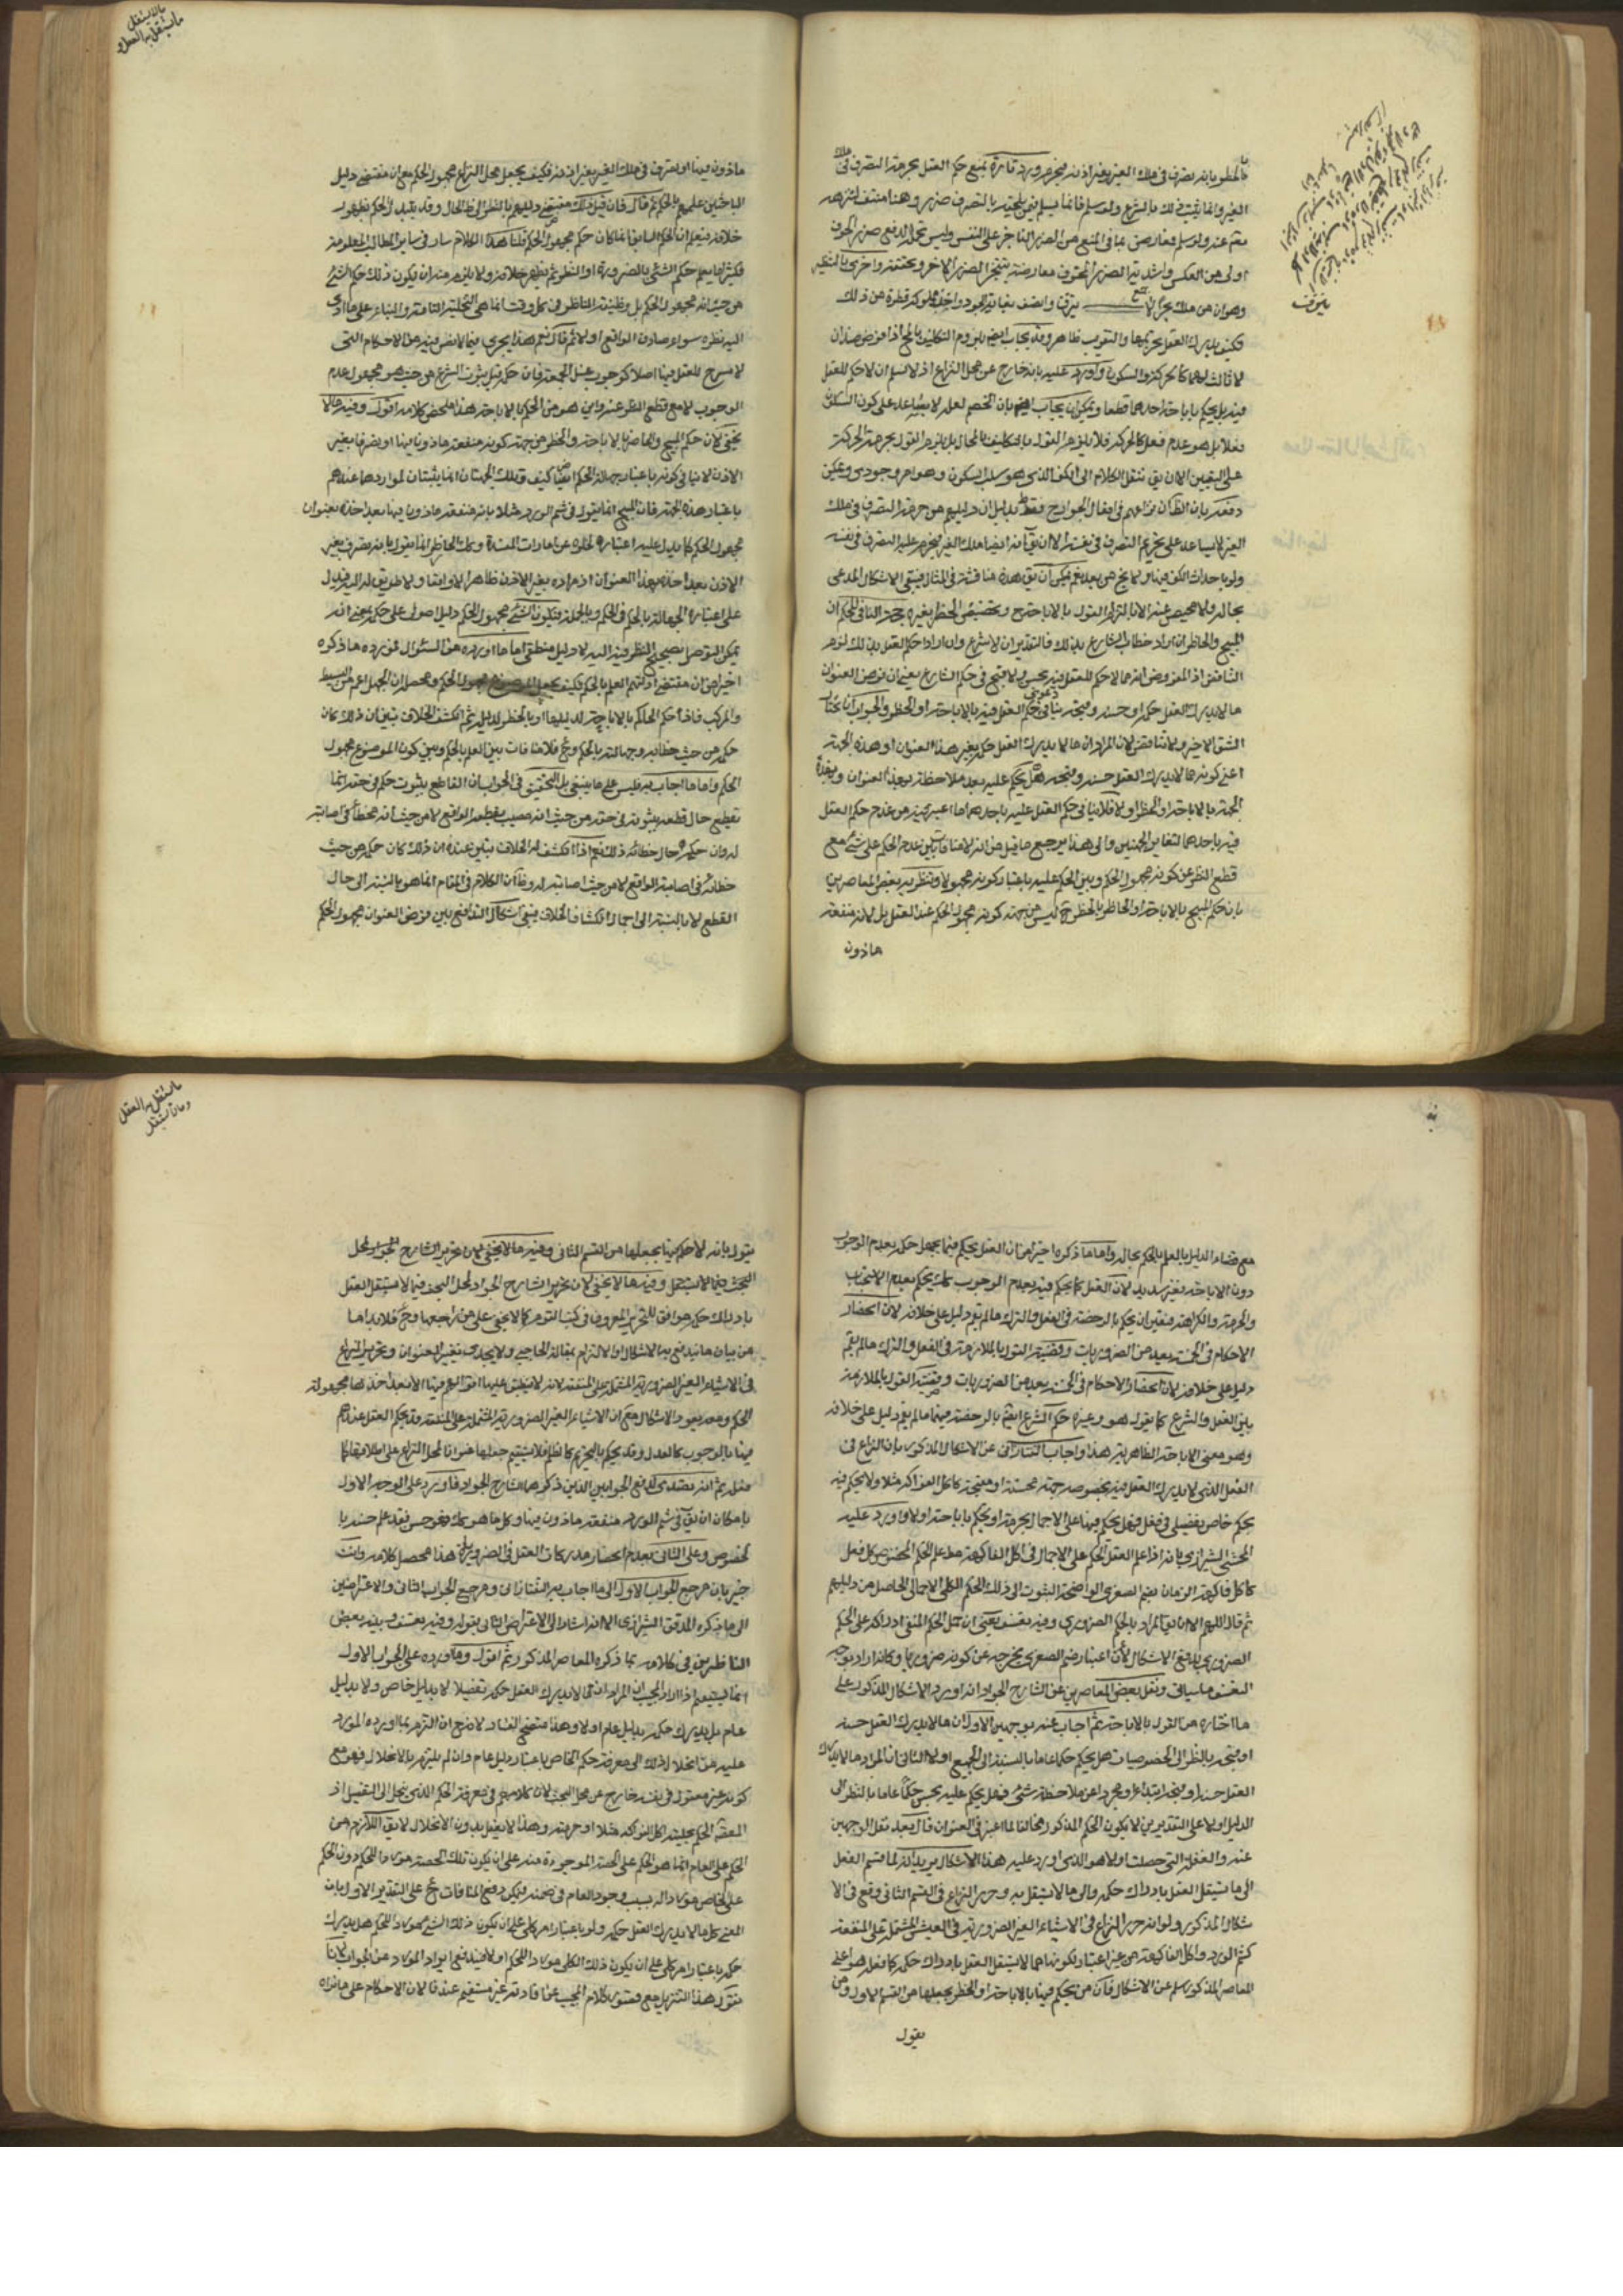 فالحظر بانه تصرف في ملك الغير بغير اذنه فيحرم ورد تارة بمنع حكم العقل بحرمة التصرف في ملك
الغير وانما يثبت ذلك بالشرع ولو سلم فانما يسلم فيمن يلحقه بالتصرف ضرر وهنا منتف لتنزهه
تعالى عنه ولو سلم فمعارض بما في المنع من الضرر الناجز على النفس وليس تحمله لدفع ضرر الخوف
اولى من العكس واشدية الضرر المخوف معارضة بتنجز الضرر الاخر وتحققه واخرى بالتنظير
وهو ان من ملك بحرا لا ينزف واتصف بغاية الجود واخذ مملوكه قطرة من ذلك
فكيف يدرك العقل تحريمها والتقريب ظاهر وقد يجاب ايضا بلزوم التكليف بالمحال اذا فرض ضدان
لا ثالث لهما كالحركة والسكون واورد عليه بانه خارج عن محل النزاع اذ لا نسلم ان لا حكم للعقل
فيه بل يحكم باباحة احدهما قطعا ويمكن ان يجاب ايضا بان الخصم لعله لا يساعد على كون السكون
فعلا بل هو عدم فعل كالحركة فلا يلزمه القول بالتكليف بالمحال بل يلزمه القول بحرمة الحركة
على التعيين الا ان يقال ننقل الكلام الى الكف الذي هو سبب السكون وهو امر وجودي ويمكن
دفعه بان الظاهر ان نزاعهم في افعال الجوارح فقط بدليل ان دليلهم من حرمة التصرف في ملك
الغير لا يساعد على تحريم التصرف في نفسه الا ان يقال انه ايضا ملك الغير فيحرم عليه التصرف في نفسه
ولو باحداث الكف فيها ولا يخ من بعد نعم يمكن ان يق هذه مناقشة في المثال فيبقى الاشكال المدعى
بحاله ولا محيص عنه الا بالتزام القول بالاباحة ح وتخصيص الحظر بغيره حجة النافي للحكم ان
المبيح والحاظر ان اراد خطاب الشارع بذلك فالتقدير ان لا شرع وان اراد حكم العقل بذلك لزم
التناقض اذ المفروض انه مما لا حكم للعقل فيه بحسن ولا قبح في حكم الشارع يعني ان فرض العنوان
ما لا يدرك العقل حكمه او حسنه وقبحه ينافي دعوى حكم العقل فيه بالاباحة او الحظر والجواب انا نختار
الشق الاخير ولا تناقض لان المراد ان ما لا يدرك العقل حكمه بغير هذا العنوان او هذه الجهة
اعني كونه مما لا يدرك العقل حسنه وقبحه هل يحكم عليه بعد ملاحظته بهذا العنوان وبهذه
الجهة بالاباحة او الحظر او لا فلا ينافي حكم العقل عليه باحدهما ما اعتبر فيه من عدم حكم العقل
فيه باحدهما لتغاير الجهتين والى هذا يرجع ما قيل من انه لا منافاة بين عدم الحكم على شئ مع
قطع النظر عن كونه مجهول الحكم وبين الحكم عليه باعتبار كونه مجهولا وتنظر فيه بعض المعاصرين
بان حكم المبيح بالاباحة او الحاظر بالحظر ح ليس من جهة كونه مجهول الحكم عند العقل بل لانه منفعة
ماذون
مالايستقل
مايستقل به العقل و
ماذون فيها او تصرف في ملك الغير بغير اذنه فكيف يجعل محل النزاع مجهول الحكم مع ان مقتضى دليل
الباحثين علمهم بالحكم ثم قال فان قيل ذلك مقتضى دليلهم بالنظر الى ظ الحال وقد يتبدل الحكم بظهور
خلافه فيعلم ان الحكم السابق انما كان حكم مجهول الحكم قلنا هذا الكلام سار في ساير المطالب المعلومة
فكثيرا ما يعلم حكم الشئ بالضرورة او النظر ثم يظهر خلافه ولا يلزم منه ان يكون ذلك حكم الشئ
من حيث انه مجهول الحكم بل وظيفة الناظر في كل وقت انما هي التخلية التامة والبناء على ما ادى
اليه نظره سواء صادف الواقع او لا ثم قال نعم هذا يجري فيما لا نص فيه من الاحكام التي
لا مسرح للعقل فيها اصلا كوجوب غسل الجمعة فان حكمه قبل ثبوت الشرع من حيث هو مجهول عدم
الوجوب لا مع قطع النظر عنه واين هو من الحكم بالاباحة هذا ملخص كلامه اقول وفيه ما لا
يخفى لان حكم المبيح والحاضر بالاباحة والحظر من جهة كونه منفعة ماذونا فيها او تصرفا بغير
الاذن لا ينافي كونه باعتبار جهالة الحكم ايضا كيف وتلك الجهتان انما يثبتان لمواردها عندهم
باعتبار هذه الجهة فان المبيح انما يقول في شم الورد مثلا بانه منفعة ماذون فيها بعد اخذه بعنوان
مجهول الحكم كما يدل عليه اعتباره لخلوه عن امارات المفسدة وكك الحاظر انما يقول بانه تصرف بغير
الاذن بعد اخذه بهذا العنوان اذ مراده بغير الاذن ظاهرا لا واقعا ولا طريق له اليه فيدل
على اعتباره الجهالة بالحكم في الحكم وبالجملة فيكون الشئ مجهول الحكم دليل اصولي على حكمه بمعنى انه
يمكن التوصل بصحيح النظر فيه اليه لا دليل منطقي اما ما اورده من السؤال فمورده ما ذكره
اخيرا من ان مقتضى ادلتهم العلم بالحكم فكيف يجعل الموضوع مجهول الحكم ومحصله ان الجهل اعم من البسيط
والمركب فاذا حكم الحاكم بالاباحة لدليلها او بالحظر لدليله ثم انكشف الخلاف تبين ان ذلك كان
حكمه من حيث خطائه وجهالته بالحكم وح فلا منافات بين العلم بالحكم وبين كون الموضوع مجهول
الحكم واما ما اجاب به فليس على ما ينبغي بل التحقيق في الجواب ان القاطع بثبوت حكم في حقه انما
يقطع حال قطعه بثبوته في حقه من حيث انه مصيب بقطعه الواقع لا من حيث انه مخطأ في اصابته
له وان حكمه حال خطائه ذلك نعم اذا انكشف له الخلاف تبين عنده ان ذلك كان حكمه من حيث
خطائه في اصابة الواقع لا من حيث اصابته له وظ ان الكلام في المقام انما هو بالنسبة الى حال
القطع لا بالنسبة الى حال انكشاف الخلاف فيبقى اشكال التدافع بين فرض العنوان مجهول الحكم
مع قضاء الدليل بالعلم بالحكم بحاله واما ما ذكره اخيرا من ان العقل يحكم فيما يجهل حكمه بعدم الوجوب
دون الاباحة فغير سديد لان العقل كما يحكم فيه بعدم الوجوب كك يحكم بعدم الاستحباب
والحرمة والكراهة فيتعين ان يحكم بالرخصة في الفعل والترك ما لم يقم دليل على خلافه لان انحصار
الاحكام في الخمسة بعد من الضروريات وقضية القول بالملازمة في الفعل والترك ما لم يقم
دليل على خلافه لان انحصار الاحكام في الخمسة بعد من الضروريات وقضية القول بالملازمة
بين العقل والشرع كما يقول هو وغيره حكم الشرع ايضا بالرخصة فيهما ما لم يقم دليل على خلافه
وهو معنى الاباحة الظاهرية هذا واجاب التفتازاني عن الاشكال المذكور بان النزاع في
الفعل الذي لا يدرك العقل فيه بخصوصه جهة محسنة او مقبحة كاكل الفواكه مثلا ولا يحكم فيه
بحكم خاص تفصيلي في فعل فهل يحكم فيها على الاجمال بحرمة او يحكم باباحة او لا واورد عليه
المحشي الشيرازي بانه اذا علم العقل الحكم على الاجمال في اكل الفاكهة فقد علم الحكم المخصوص بكل فعل
كاكل فاكهة الرمان بضم الصغرى الواضحة الثبوت الى ذلك الحكم الكلي الاجمالي الحاصل من دليلهم
ثم قال اللهم الا ان يق المراد بالحكم الضروري وفيه تعسف يعني ان حمل الحكم المنفي ادراكه على الحكم
الضروري يدفع الاشكال لان اعتبار ضم الصغرى يخرجه عن كونه ضروريا وكانه اراد بوجه
التعسف ما سياتي ونقل بعض المعاصرين عن الشارح الجواد انه اورد الاشكال المذكور على
ما اختاره من القول بالاباحة ثم اجاب عنه بوجهين الاول ان ما لا يدرك العقل حسنه
او قبحه بالنظر الى الخصوصيات هل يحكم حكما عاما بالنسبة الى الجميع او لا الثاني ان المراد ما لا يدرك
العقل حسنه او قبحه ابتداء ومجردا عن ملاحظة شئ فهل يحكم عليه بحسن حكما عاما بالنظر الى
الدليل او لا وعلى التقديرين لا يكون الحكم المذكور مخالفا لما اعتبر في العنوان قال بعد نقل الوجهين
عنه والغفلة التي حصلت اولا هو الذي اورد عليه هذا الاشكال يريد انه لما قسم الفعل
الى ما يستقل العقل بادراك حكمه والى ما لا يستقل به وحرر النزاع في القسم الثاني وقع في الا
شكال المذكور ولو انه حرر النزاع في الاشياء الغير الضرورية في التعيش المشتمل على المنفعة
كشم الورد واكل الفاكهة من غير اعتبار لكونها مما لا يستقل العقل بادراك حكمه كما فعله هو اعني
المعاصر المذكور سلم عن الاشكال فان من يحكم فيها بالاباحة او الحظر يجعلها من القسم الاول ومن
يقول
مايستقل به العقل
ومالايستقل
يقول بانه لا حكم فيها يجعلها من القسم الثاني وفيه ما لا يخفى لان تحرير الشارح الجواد لمحل
البحث فيما لا يستقل وفيه ما لا يخفى لان تحرير الشارح الجواد لمحل البحث فيما لا يستقل العقل
بادراك حكمه موافق للتحرير المعروف في كتب القوم كما لا يخفى على من راجعها وح فلا بد اما
من بيان ما يندفع به الاشكال او الالتزام بمقالة الحاجبي ولا يجدي تغيير العنوان وتحرير النزاع
في الاشياء الغير الضرورية المشتملة على المنفعة لانه لا ينطبق عليها اقوالهم فيها الا بعد اخذها مجهولة
الحكم ومعه يعود الاشكال مع ان الاشياء الغير الضرورية المشتملة على المنفعة قد يحكم العقل عندهم
فيها بالوجوب كالعدل وقد يحكم بالتحريم كالظلم فلا يستقيم جعلها عنوانا لمحل النزاع على اطلاقها كما
فعله ثم انه تصدى لدفع الجوابين الذين ذكرهما الشارح الجواد فاورد على الوجه الاول
بامكان ان يق في شم الورد منفعة ماذون فيها وكل ما هو كك فهو حسن فقد علم حسنه با
لخصوص وعلى الثاني بعدم انحصار مدركات العقل في الضرورية هذا محصل كلامه وانت
خبير بان مرجع الجواب الاول الى ما اجاب به التفتازاني ومرجع الجواب الثاني والاعتراضين
الى ما ذكره المدقق الشيرازي الا انه اشار الى الاعتراض الثاني بقوله وفيه تعسف وبينه بعض
الناظرين في كلامه بما ذكره المعاصر المذكور ثم اقول وما اورده على الجواب الاول
انما يستقيم اذا اراد المجيب ان المراد ان ما لا يدرك العقل حكمه تفصيلا لا بدليل خاص ولا بدليل
عام هل يدرك حكمه بدليل عام او لا وهذا متضح الفساد لا ندفع ان التزم بما اورده المورد
عليه من انحلال ذلك الى معرفة حكم الخاص باعتبار دليل عام فان لم يلتزم بالانحلال فهو مع
كونه غير معقول في نفسه خارج عن محل البحث لان كلامهم في معرفة الحكم الذي ينحل الى التفصيل اذ
المقصد الحكم بحلية اكل الفواكه مثلا او حرمته وهذا لا يعقل بدون الانحلال لا يق اللازم من
الحكم على العام انما هو الحكم على الحصة الموجودة منه على ان يكون تلك الحصة موردا للحكم دون الحكم
على الخاص موردا له بسبب وجود العام في ضمنه فيمكن دفع المنافات ح على التقدير الاول بان
المعنى كل ما لا يدرك العقل حكمه ولو باعتبار امر كلي على ان يكون ذلك الشئ موردا للحكم هل يدرك
حكمه باعتبار امر كلي على ان يكون ذلك الكلي موردا للحكم او لا فيندفع ايراد المورد عن الجواب لانا
نقول هذا التنزيل مع قصور كلام المجيب عن افادته غير مستقيم عندنا لان الاحكام على ما نراه